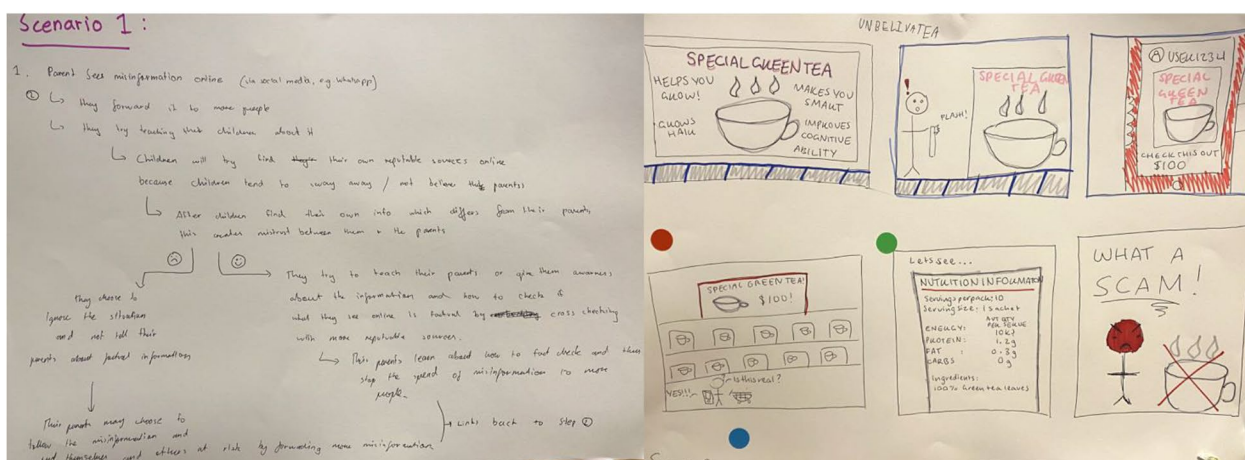 Scenario 1:
1. Parent sees misinformation online (via social media, e.g. Whatsapp)
② ↳ they forward it to more people
↳ they try teaching their children about it
↳ Children will try find their own reputable sources online
because children tend to sway away / not believe parents
↳ After children find their own info which differs from their parents,
this creates mistrust between them & the parents
They choose to
ignore the situation
and not tell their
parents about factual information
Their parents may choose to
follow the misinformation and
themselves and others at risk by forwarding more misinformation
They try to teach their parents or give them awareness
about the information and how to check if
what they see online is factual by cross checking
with more reputable sources.
↳ parents learn about how to fact check and
stop the spread of misinformation to more
people.
→ Links back to step ②
UNBELIVATEA
SPECIAL GREEN TEA
HELPS YOU
GROW!
GROWS
HAIR
MAKES YOU
SMART
IMPROVES
COGNITIVE
ABILITY
!
FLASH!
SPECIAL GREEN
TEA
USER1234
SPECIAL
GREEN
TEA
CHECK THIS OUT
$100
SPECIAL GREEN TEA!
$100!
Is this real?
YES!!!
Lets see...
NUTRITION INFORMATION
Servings per pack: 10
Serving size: 1 sachet
AVG QTY
PER SERVE
ENERGY: 10kJ
PROTEIN: 1.2g
FAT: 0.3g
CARBS 0g
Ingredients:
100% Green tea leaves
WHAT A
SCAM!